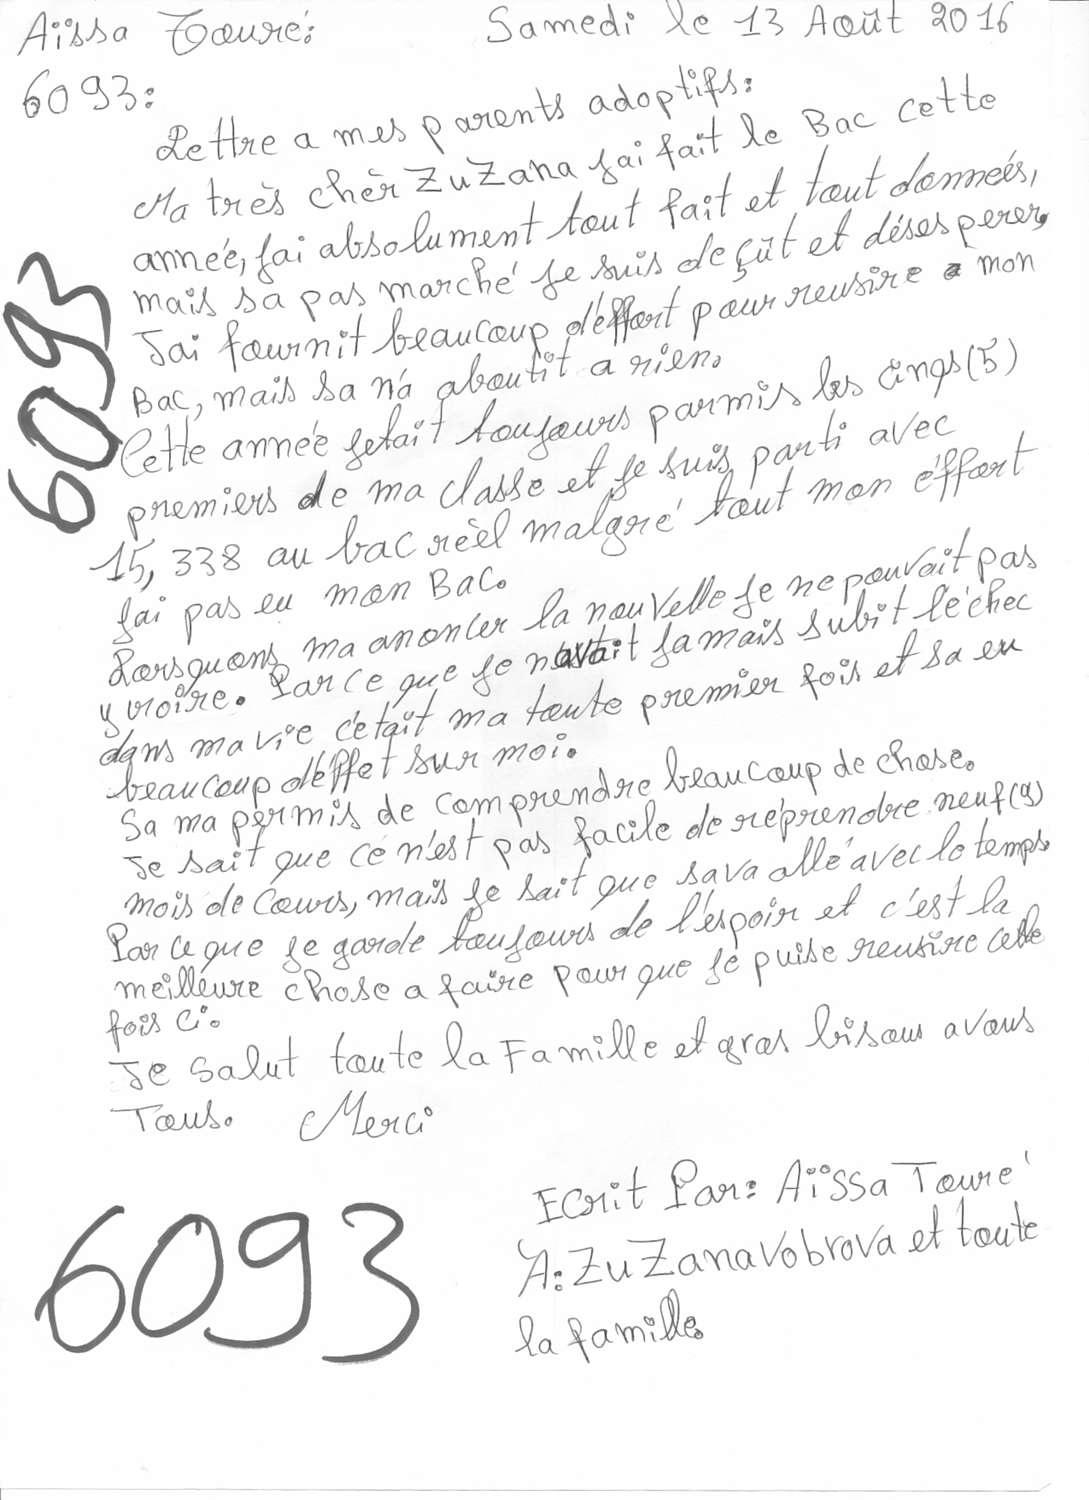 Aïssa Touré: Samedi le 13 Août 2016
6093:
Lettre a mes parents adoptifs:
Ma très chèr ZuZana jai fait le Bac cette
année, jai absolument tout fait et tout donneés,
mais sa pas marché je suis deçût et désesperer,
Jai fournit beaucoup d'éffort pour reusire a mon
Bac, mais sa n'a aboutit a rien.
Cette année jetait toujours parmis les cinqs (5)
premiers de ma classe et je suis parti avec
15,338 au bac réel malgré tout mon éffort
jai pas eu mon Bac.
Lorsquons ma anoncer la nouvelle je ne pouvait pas
y vroire. Parce que je navait jamais subit l'échec
dans ma vie c'était ma toute premier fois et sa eu
beaucoup d'éffet sur moi.
Sa ma permis de comprendre beaucoup de chose.
Je sait que ce n'est pas facile de réprendre neuf (9)
mois de cours, mais je sait que sava allé avec le temps.
Parce que je garde toujours de l'espoir et c'est la
meilleure chose a faire pour que je puise reusire cette
fois ci.
Je salut toute la Famille et gros bisous a vous
Tous. Merci
6093
Ecrit Par: Aïssa Touré
A: ZuZanavobrova et toute
la famille
6093